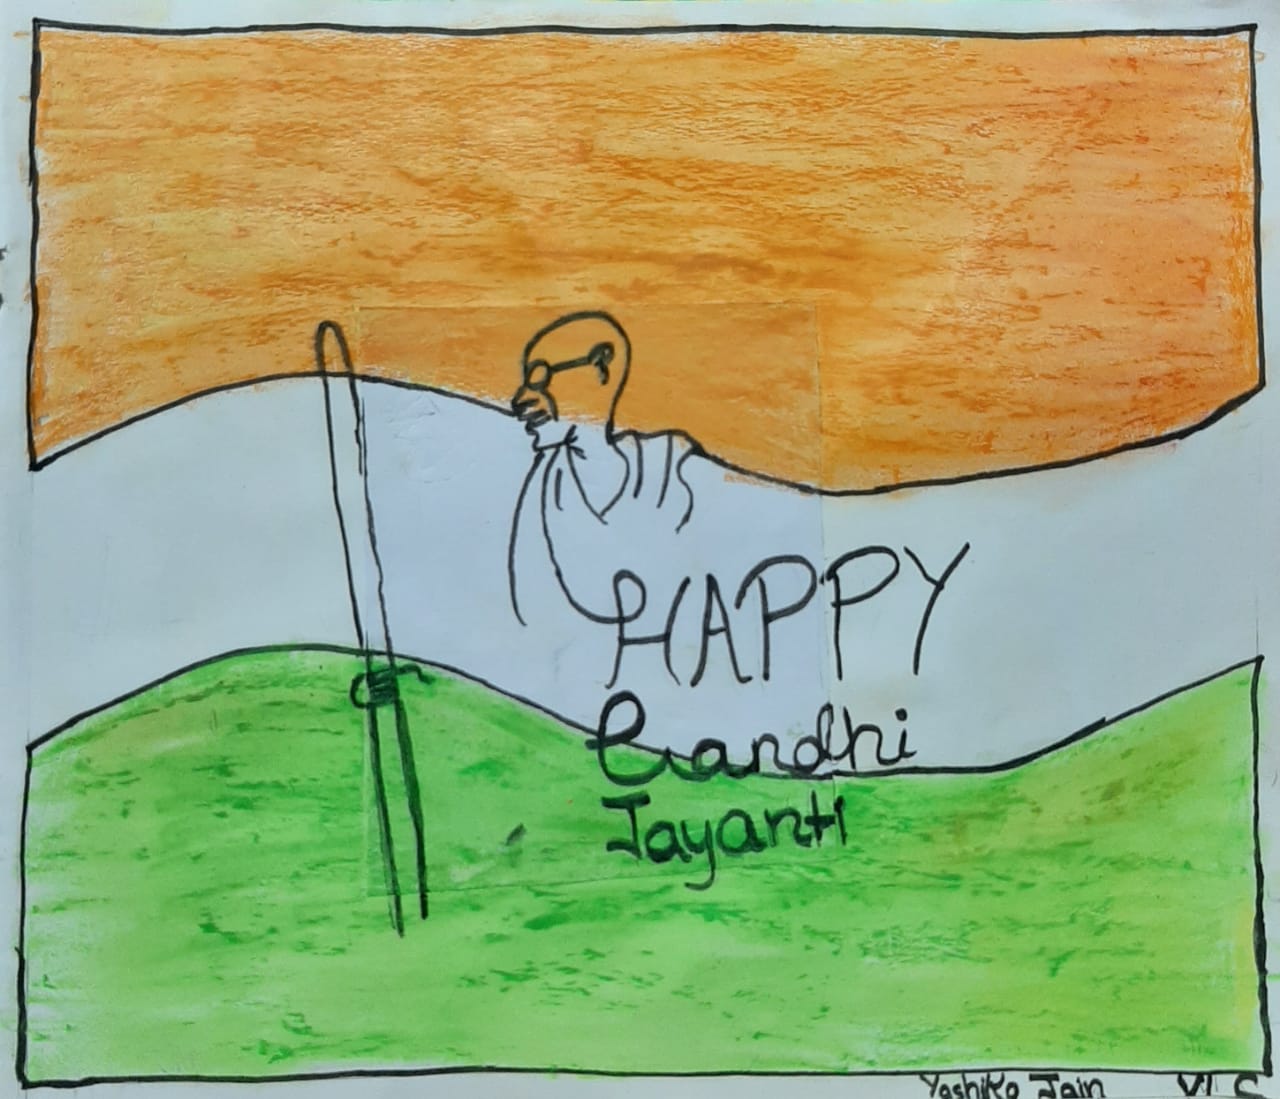 HAPPY
Gandhi
Jayanti
Yashika Jain VI C